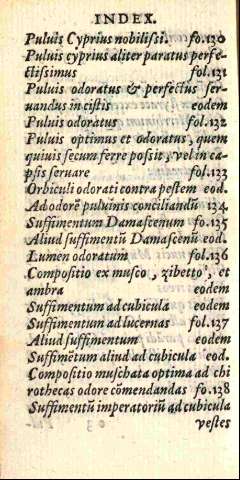 INDEX.
Puluis Cyprius nobilissi. fo.130
Puluis cyprius aliter paratus perfe-
ctissimus fol.131
Puluis odoratus & perfectus ser-
uandus in cistis eodem
Puluis odoratus fol.132
Puluis optimus et odoratus, quem
quiuis secum ferre possit, vel in ca-
psis seruare fol.133
Orbiculi odorati contra pestem eod.
Ad odorē puluinis conciliandū 134.
Suffimentum Damascenum fo.135
Aliud suffimentū Damascenū eod.
Lumen odoratum fol.136
Compositio ex musco, zibetto, et
ambra eodem
Suffimentum ad cubicula eodem
Suffimentum ad lucernas fol.137
Aliud suffimentum eodem
Suffimētum aliud ad cubicula eod.
Compositio muschata optima ad chi
rothecas odore cōmendandas fo.138
Suffimentū imperatoriū ad cubicula
vestes